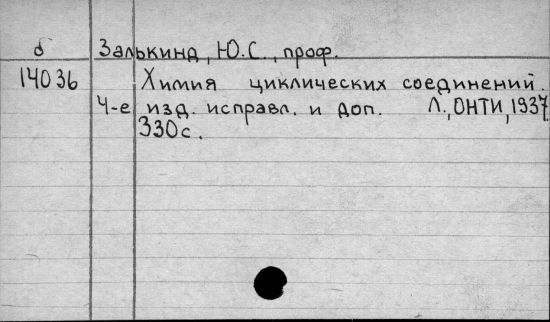 б Залькинд, Ю.С., проф.
14036 Химия циклических соединений.
4-е изд. исправл. и доп. Л., ОНТИ, 1937.
330с.